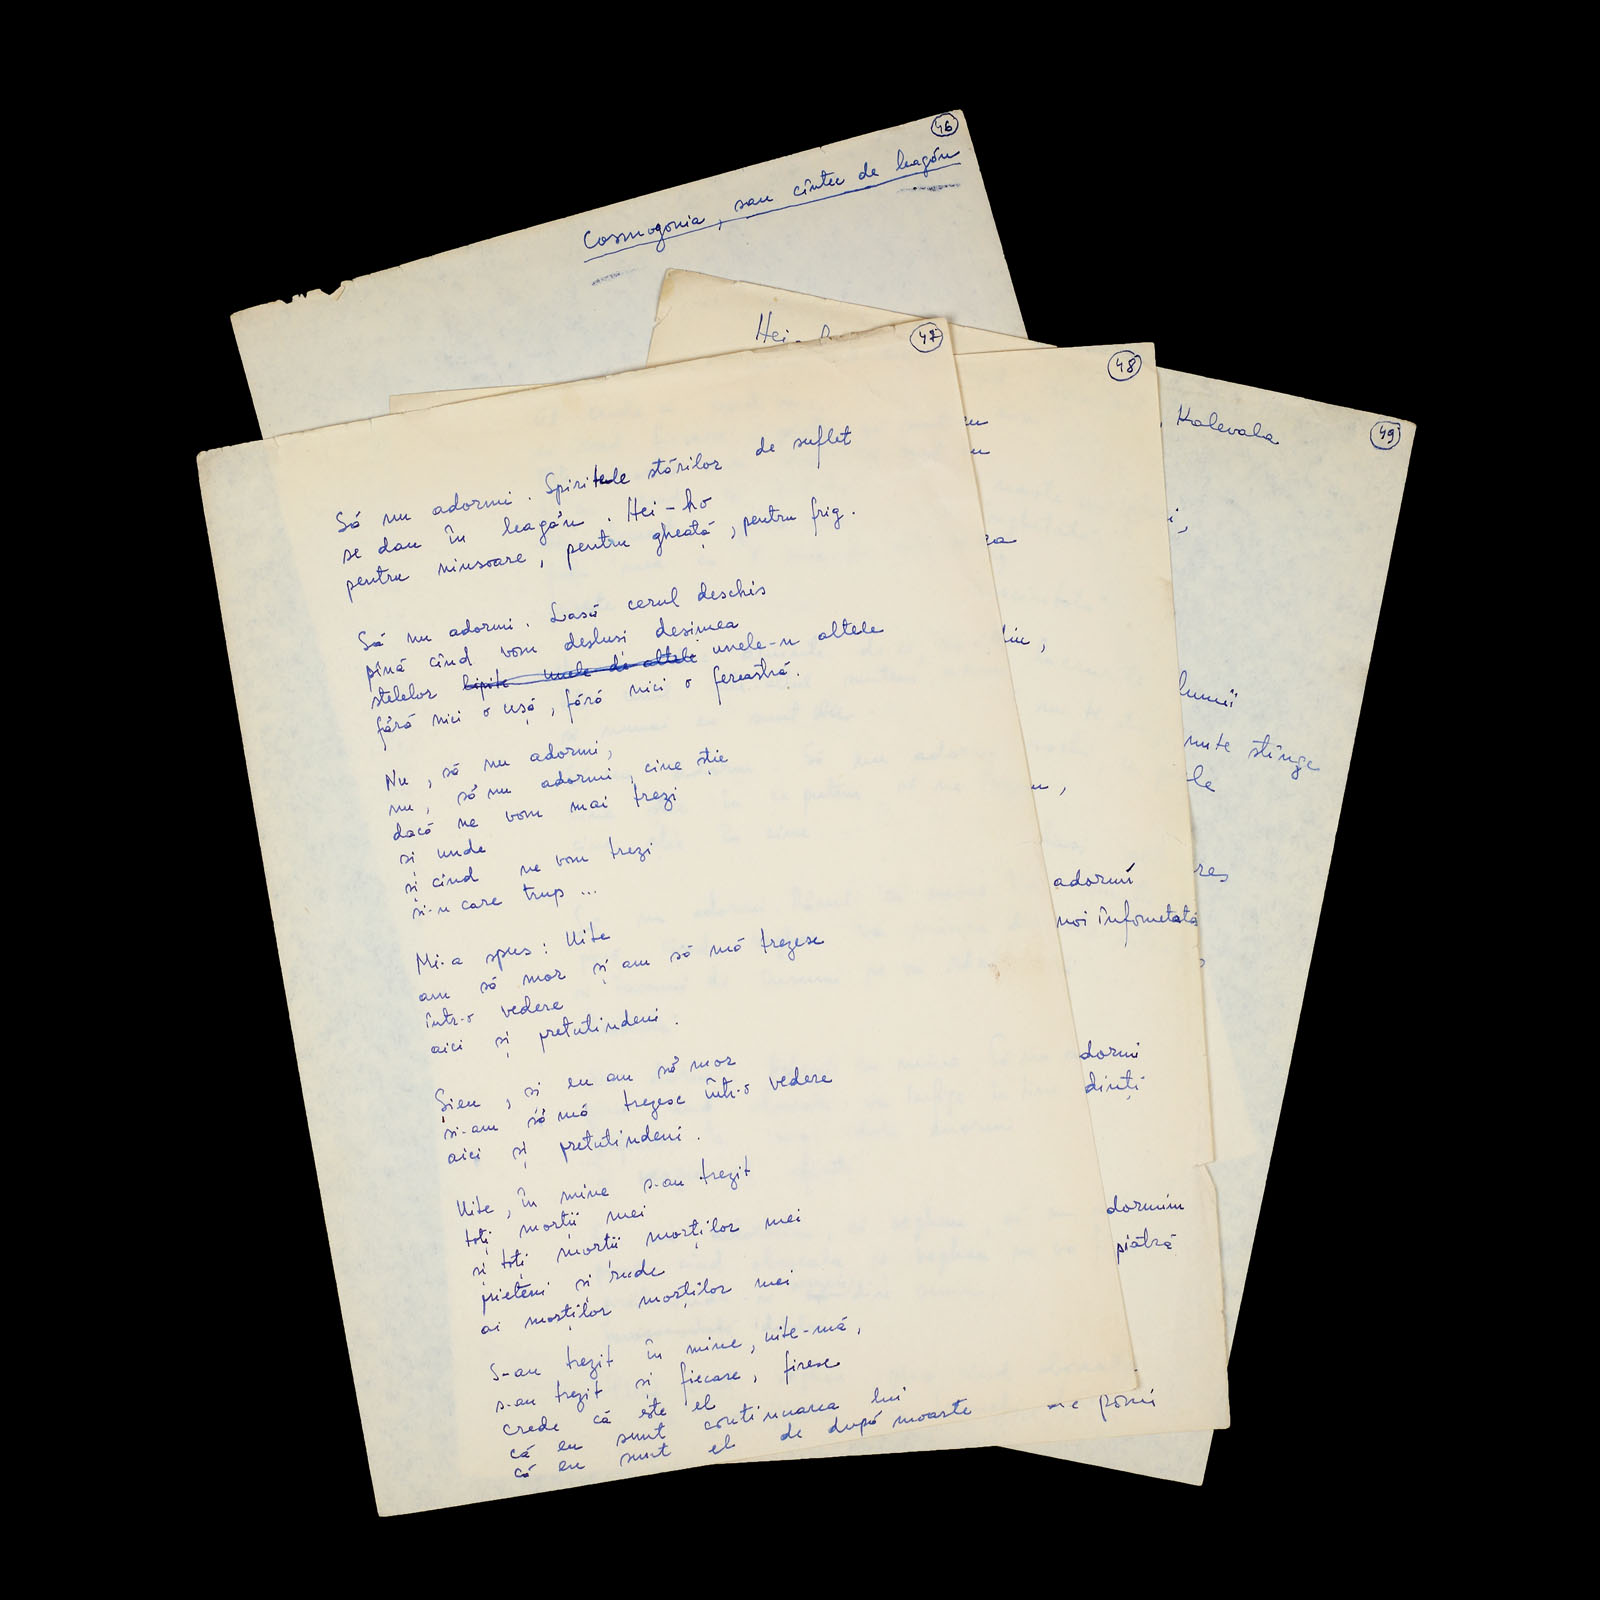 46
Cosmogonia, sau cîntec de leagăn
Hei-
47
Să nu adormi. Spiritele stărilor de suflet
se dau în leagăn. Hei-ho
pentru ninsoare, pentru gheață, pentru frig.
Să nu adormi. Lasă cerul deschis
pînă cînd vom desluși desimea
stelelor lipite unele de altele unele-n altele
fără nici o ușă, fără nici o fereastră.
Nu, să nu adormi,
nu, să nu adormi, cine știe
dacă ne vom mai trezi
și unde
și cînd ne vom trezi
și-n care trup ...
Mi-a spus: Uite
am să mor și am să mă trezesc
într-o vedere
aici și pretutindeni.
Și eu, și eu am să mor
și-am să mă trezesc într-o vedere
aici și pretutindeni.
Uite, în mine s-au trezit
toți morții mei
și toți morții morților mei
prieteni și rude
ai morților morților mei
S-au trezit în mine, uite-mă,
s-au trezit și fiecare, firesc
crede că este el
că eu sunt continuarea lui
că eu sunt el de după moarte
48
adormi
noi înfometată
dormi
dinți
dormim
piatră
ne porni
49
Kalevala
lumii
stinge